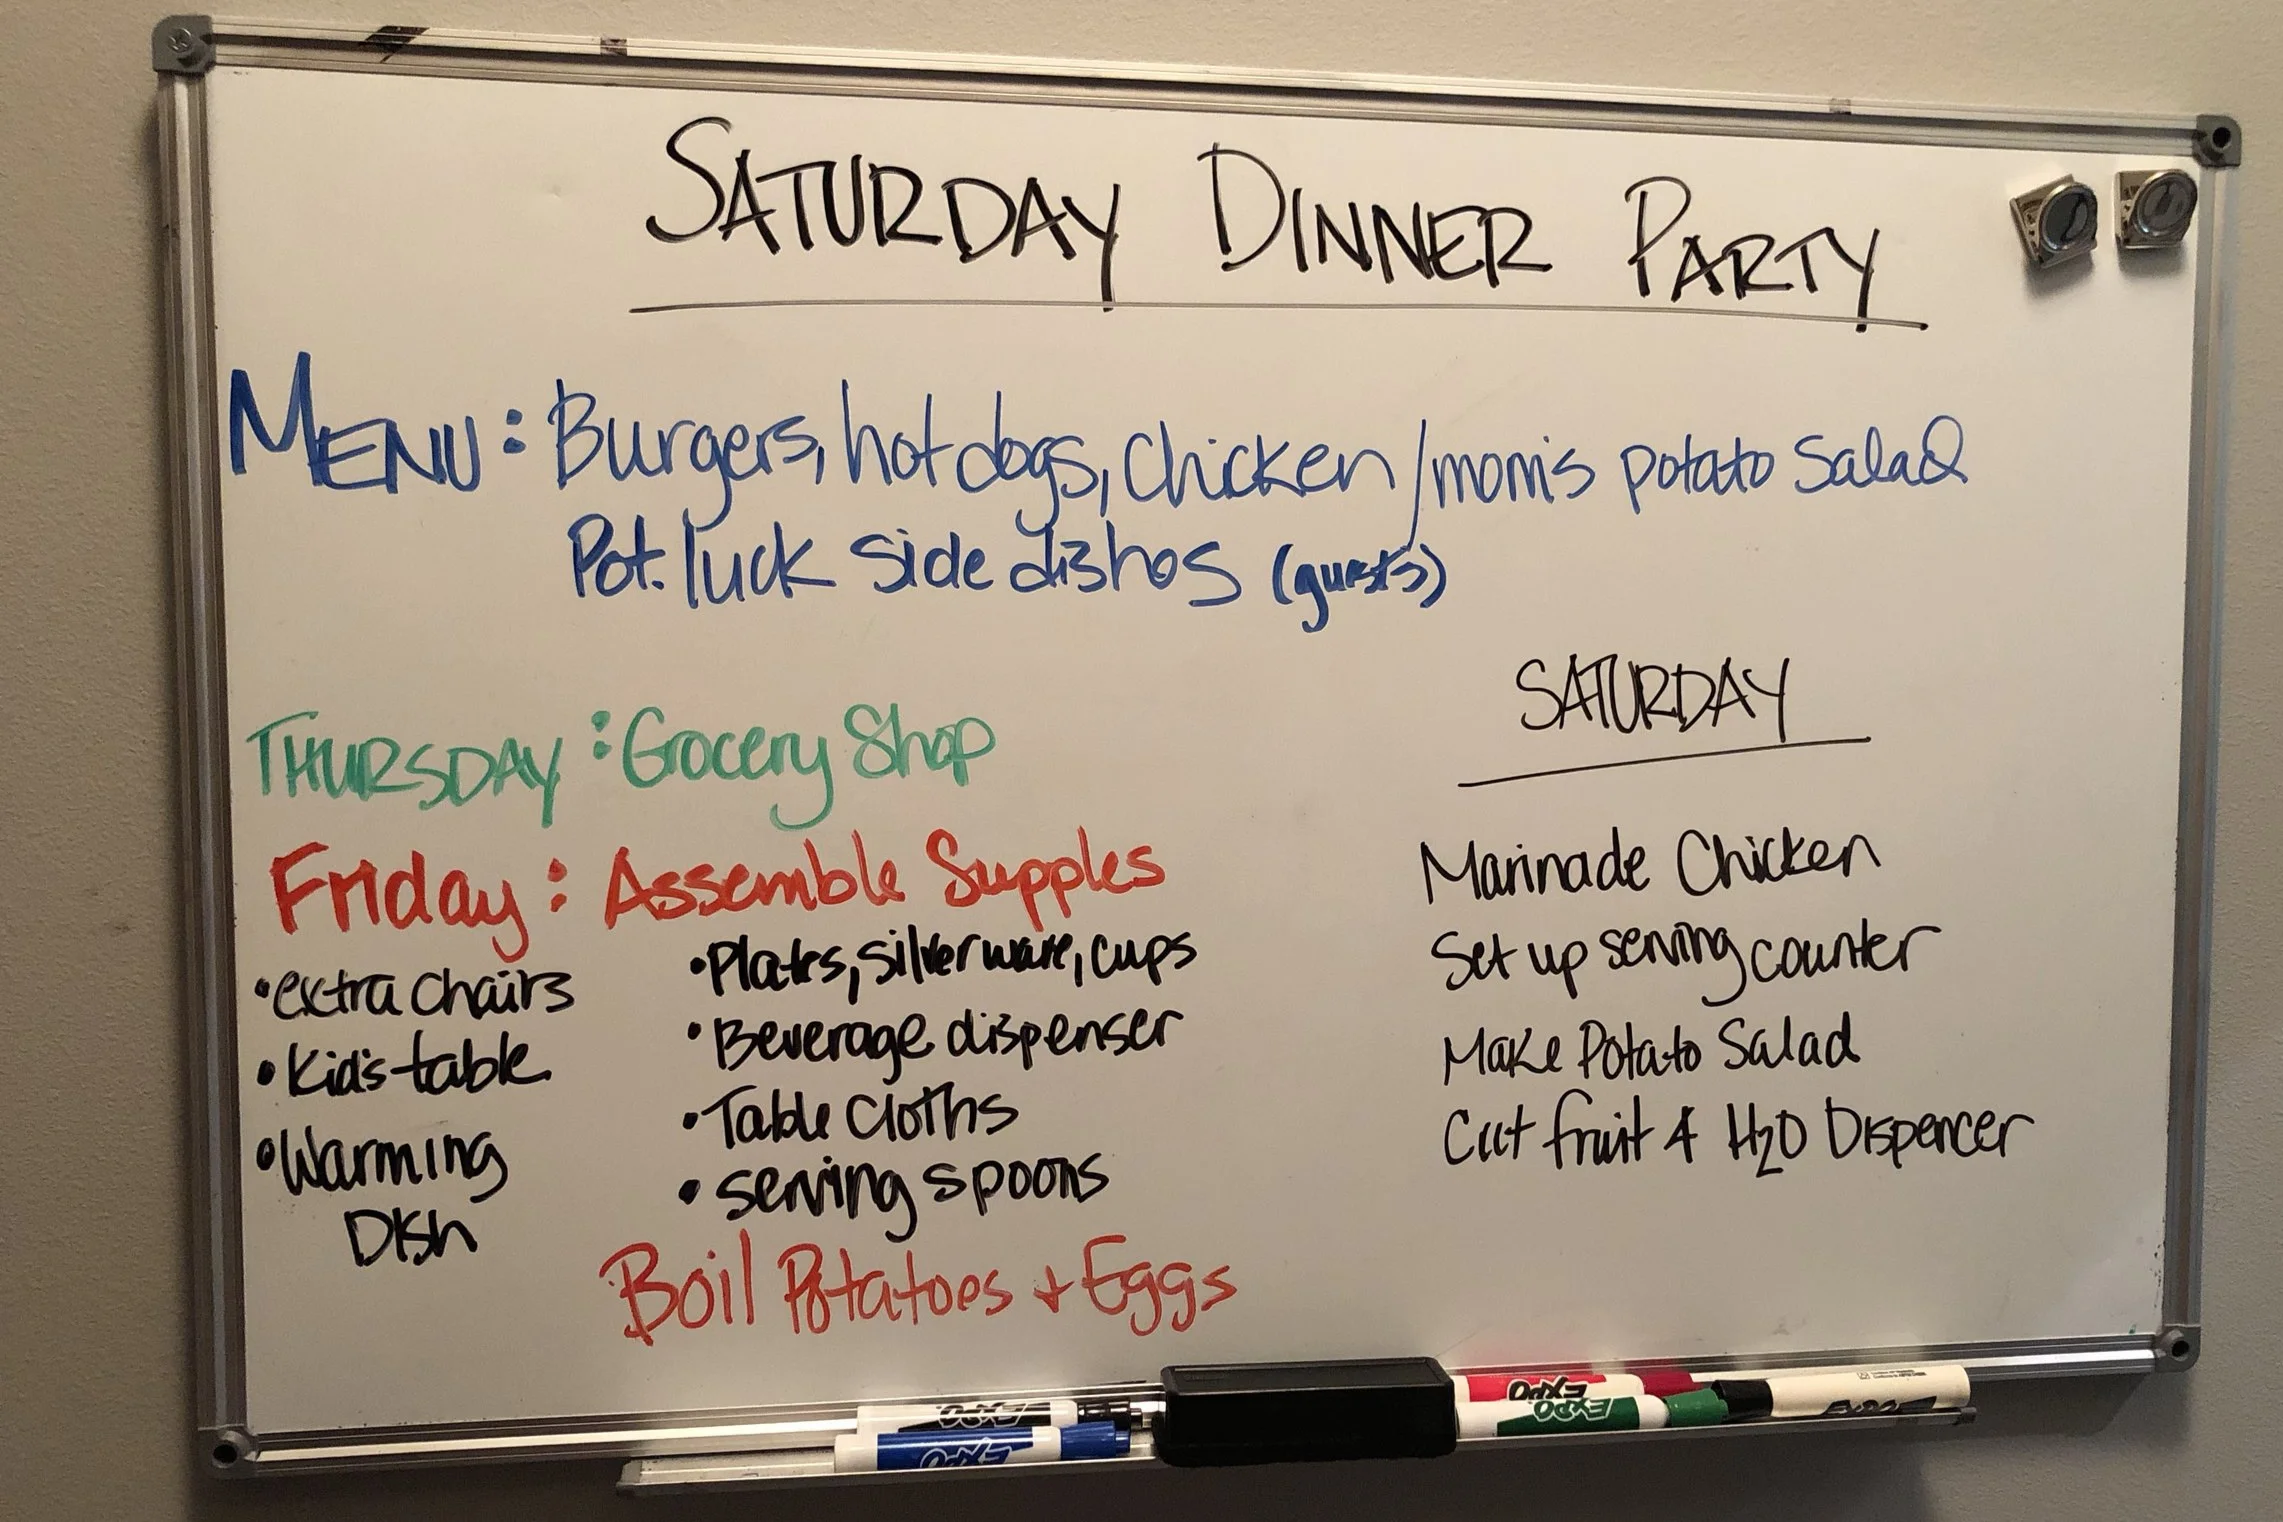 SATURDAY DINNER PARTY
MENU: Burgers, hot dogs, Chicken/mom's potato Salad
Pot. luck side dishes (guests)
THURSDAY: Grocery Shop
Friday: Assemble Supples
•extra chairs
•Kid's table
•Warming
DIsh
•Plates, silverware, cups
•Beverage dispenser
•Table Cloths
•serving spoons
Boil Potatoes + Eggs
SATURDAY
Marinade Chicken
Set up serving counter
Make Potato Salad
Cut fruit 4 H2O Dispencer
EXPO
EXPO
EXPO
EXPO
EXPO